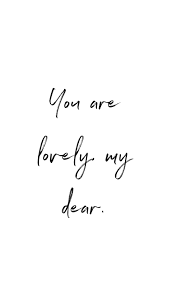 You are
lovely, my
dear.